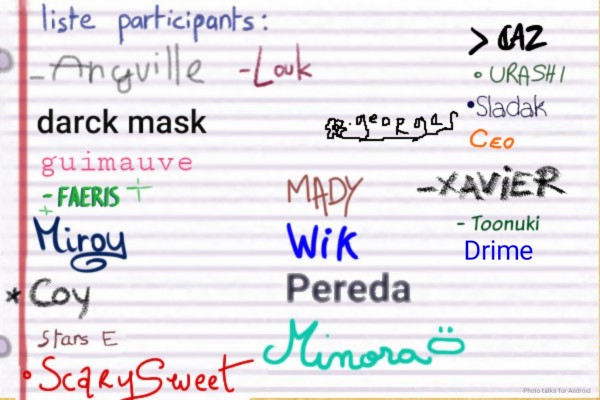 liste participants:
- Angville
- Louk
> CAZ
• URASHI
• Sladak
darck mask
georgas
Ceo
guimauve
- FAERIS
MADY
- XAViER
Miroy
Wik
- Toonuki
Drime
* Coy
Pereda
Stars E
Minora
• ScarySweet
Photo talks for Android